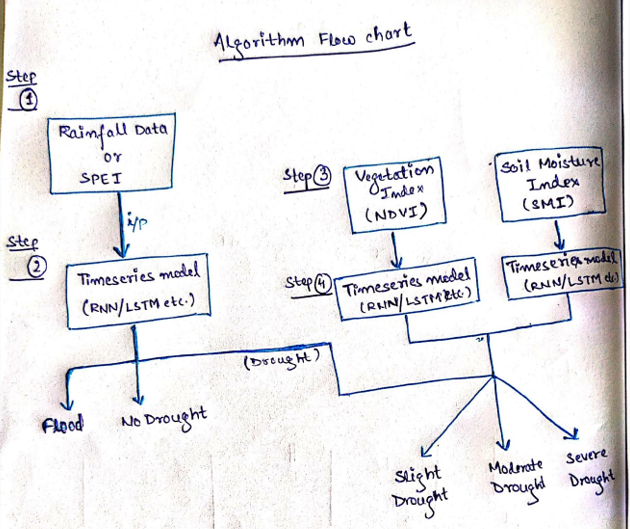 Algorithm Flow chart
Step
1
Rainfall Data
or
SPEI
i/p
Step
2
Timeseries model
(RNN/LSTM etc.)
(Drought)
Flood
No Drought
Step 3
Vegetation
Index
(NDVI)
Soil Moisture
Index
(SMI)
Step 4
Timeseries model
(RNN/LSTM etc)
Timeseries model
(RNN/LSTM etc)
Slight
Drought
Moderate
Drought
Severe
Drought